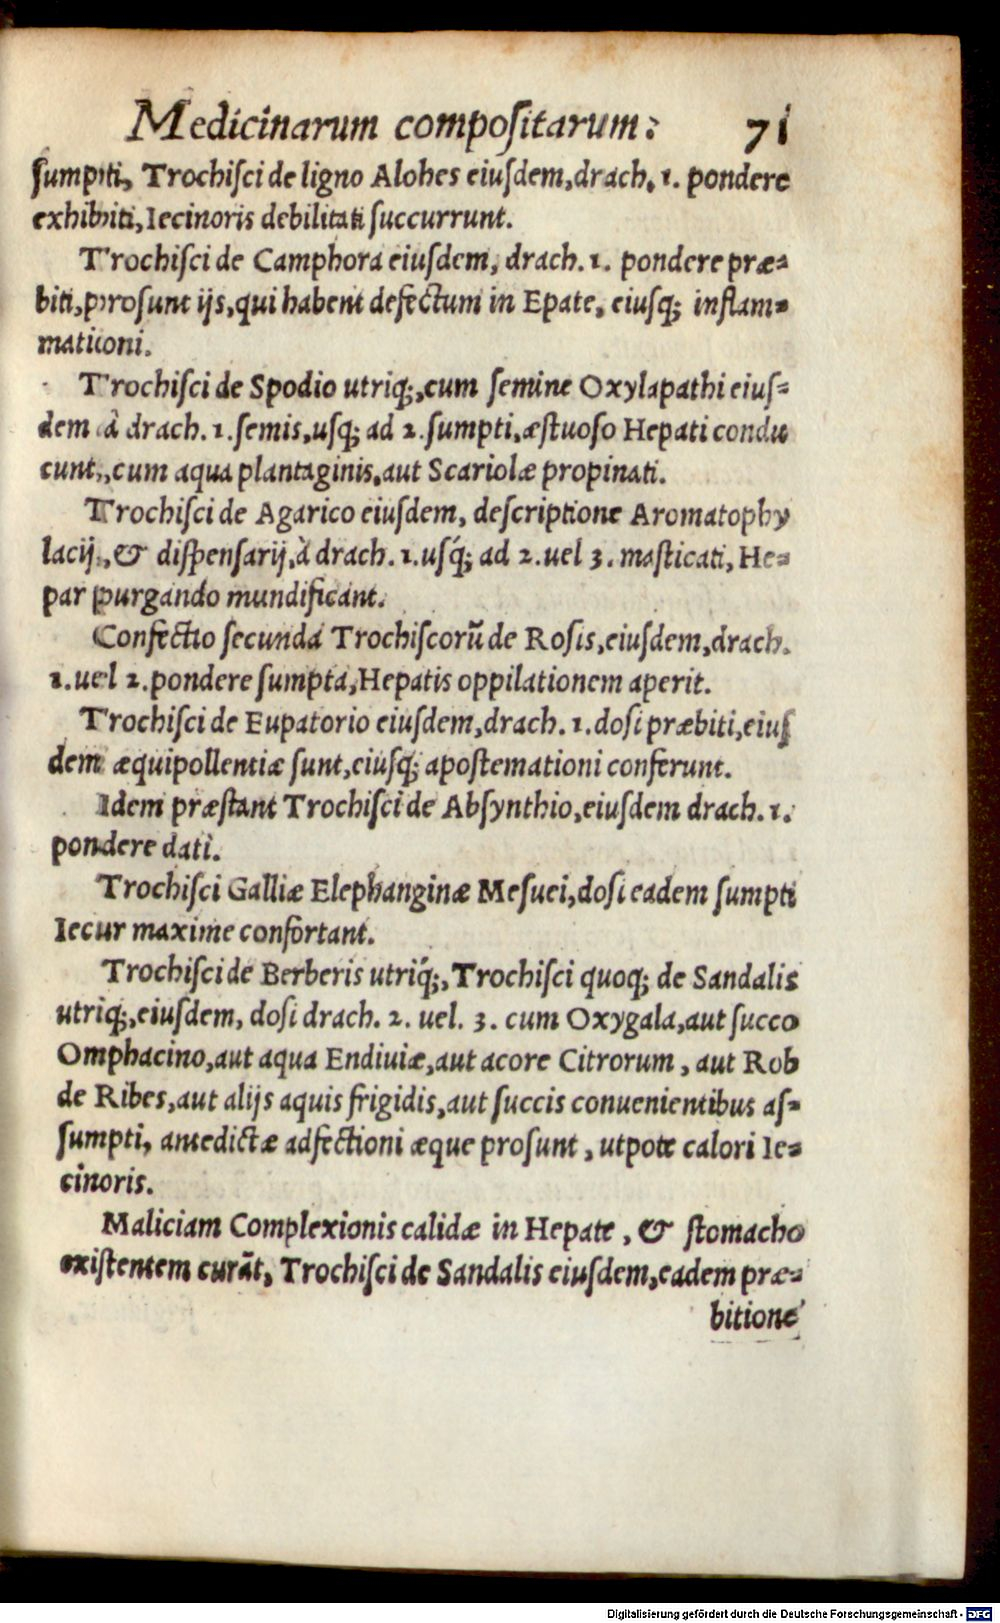 Medicinarum compoſitarum: 71
ſumpti, Trochiſci de ligno Alohes eiuſdem, drach. 1. pondere
exhibiti, Iecinoris debilitati ſuccurrunt.
Trochiſci de Camphora eiuſdem, drach. 1. pondere præ-
biti, proſunt ijs, qui habent defectum in Epate, eiusq; inflam-
mationi.
Trochiſci de Spodio utriq;, cum ſemine Oxylapathi eiuſ-
dem à drach. 1. ſemis, uſq; ad 2. ſumpti, æſtuoſo Hepati condu
cunt, cum aqua plantaginis, aut Scariolæ propinati.
Trochiſci de Agarico eiuſdem, deſcriptione Aromatophy
lacij, & diſpenſarij, à drach. 1. uſq́; ad 2. uel 3. maſticati, He-
par purgando mundificant.
Confectio ſecunda Trochiſcorũ de Roſis, eiuſdem, drach.
1. uel 2. pondere ſumpta, Hepatis oppilationem aperit.
Trochiſci de Eupatorio eiuſdem, drach. 1. doſi præbiti, eiuſ
dem æquipollentiæ ſunt, eiuſq; apoſtemationi conferunt.
Idem præſtant Trochiſci de Abſynthio, eiuſdem drach. 1.
pondere dati.
Trochiſci Galliæ Elephanginæ Meſuei, doſi eadem ſumpti
Iecur maxime confortant.
Trochiſci de Berberis utriq́;, Trochiſci quoq; de Sandalis
utriq;, eiuſdem, doſi drach. 2. uel. 3. cum Oxygala, aut ſucco
Omphacino, aut aqua Endiuiæ, aut acore Citrorum, aut Rob
de Ribes, aut alijs aquis frigidis, aut ſuccis conuenientibus aſ-
ſumpti, antedictæ adfectioni æque proſunt, utpote calori Ie-
cinoris.
Maliciam Complexionis calidæ in Hepate, & ſtomacho
exiſtentem curãt, Trochiſci de Sandalis eiuſdem, eadem præ-
bitione
Digitalisierung gefördert durch die Deutsche Forschungsgemeinschaft - DFG